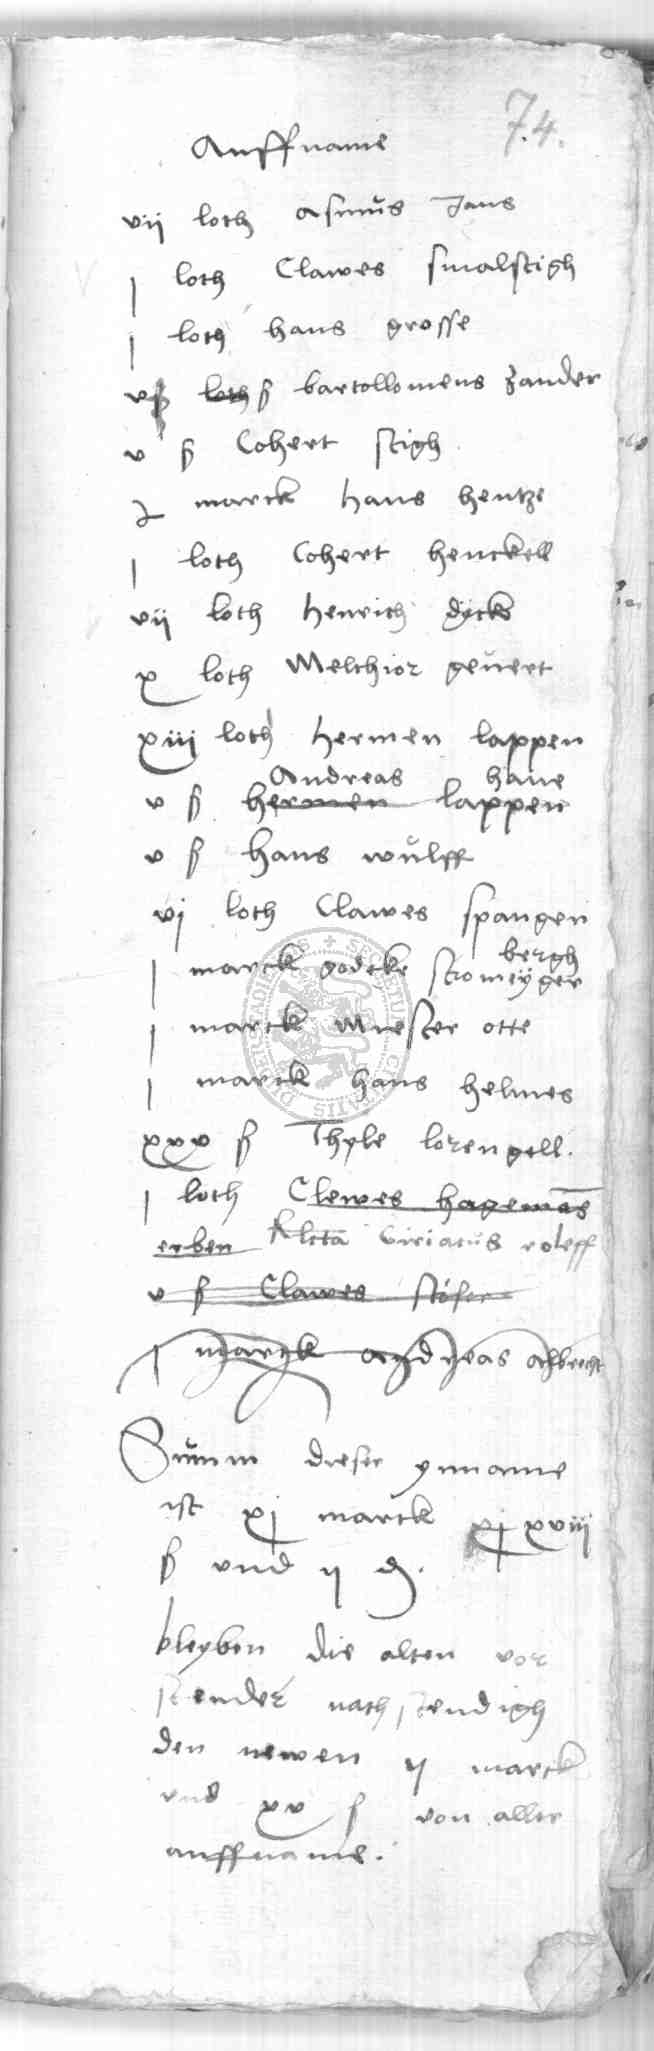 74.
Auffname
vii loth Asmus Jans
j loth Clawes smalstigh
j loth hans grosse
v ß bartollomeus zander
v ß Cohert stigh
marck hans hentze
j loth Cohert henckell
vii loth Henrich dyck
x loth Melchior gevert
xiii loth hermen lappen
Andreas hane
v ß hermen lappen
v ß hans wulff
vj loth Clawes spangen
bergh
j marck godeke stromeyger
j marck Mester otte
j marck hans helmes
xxv ß Thyle lorengell.
j loth Clewes hagemans
erben Ciriacus roleff
v ß Clawes
j marck andreas albrecht
Summ dieser ynname
ist xj marck xviii
ß vnd ij d.
bleyben die alten vor
stender nachstendigh
den newen ij marck
vnd xv ß von aller
auffname.